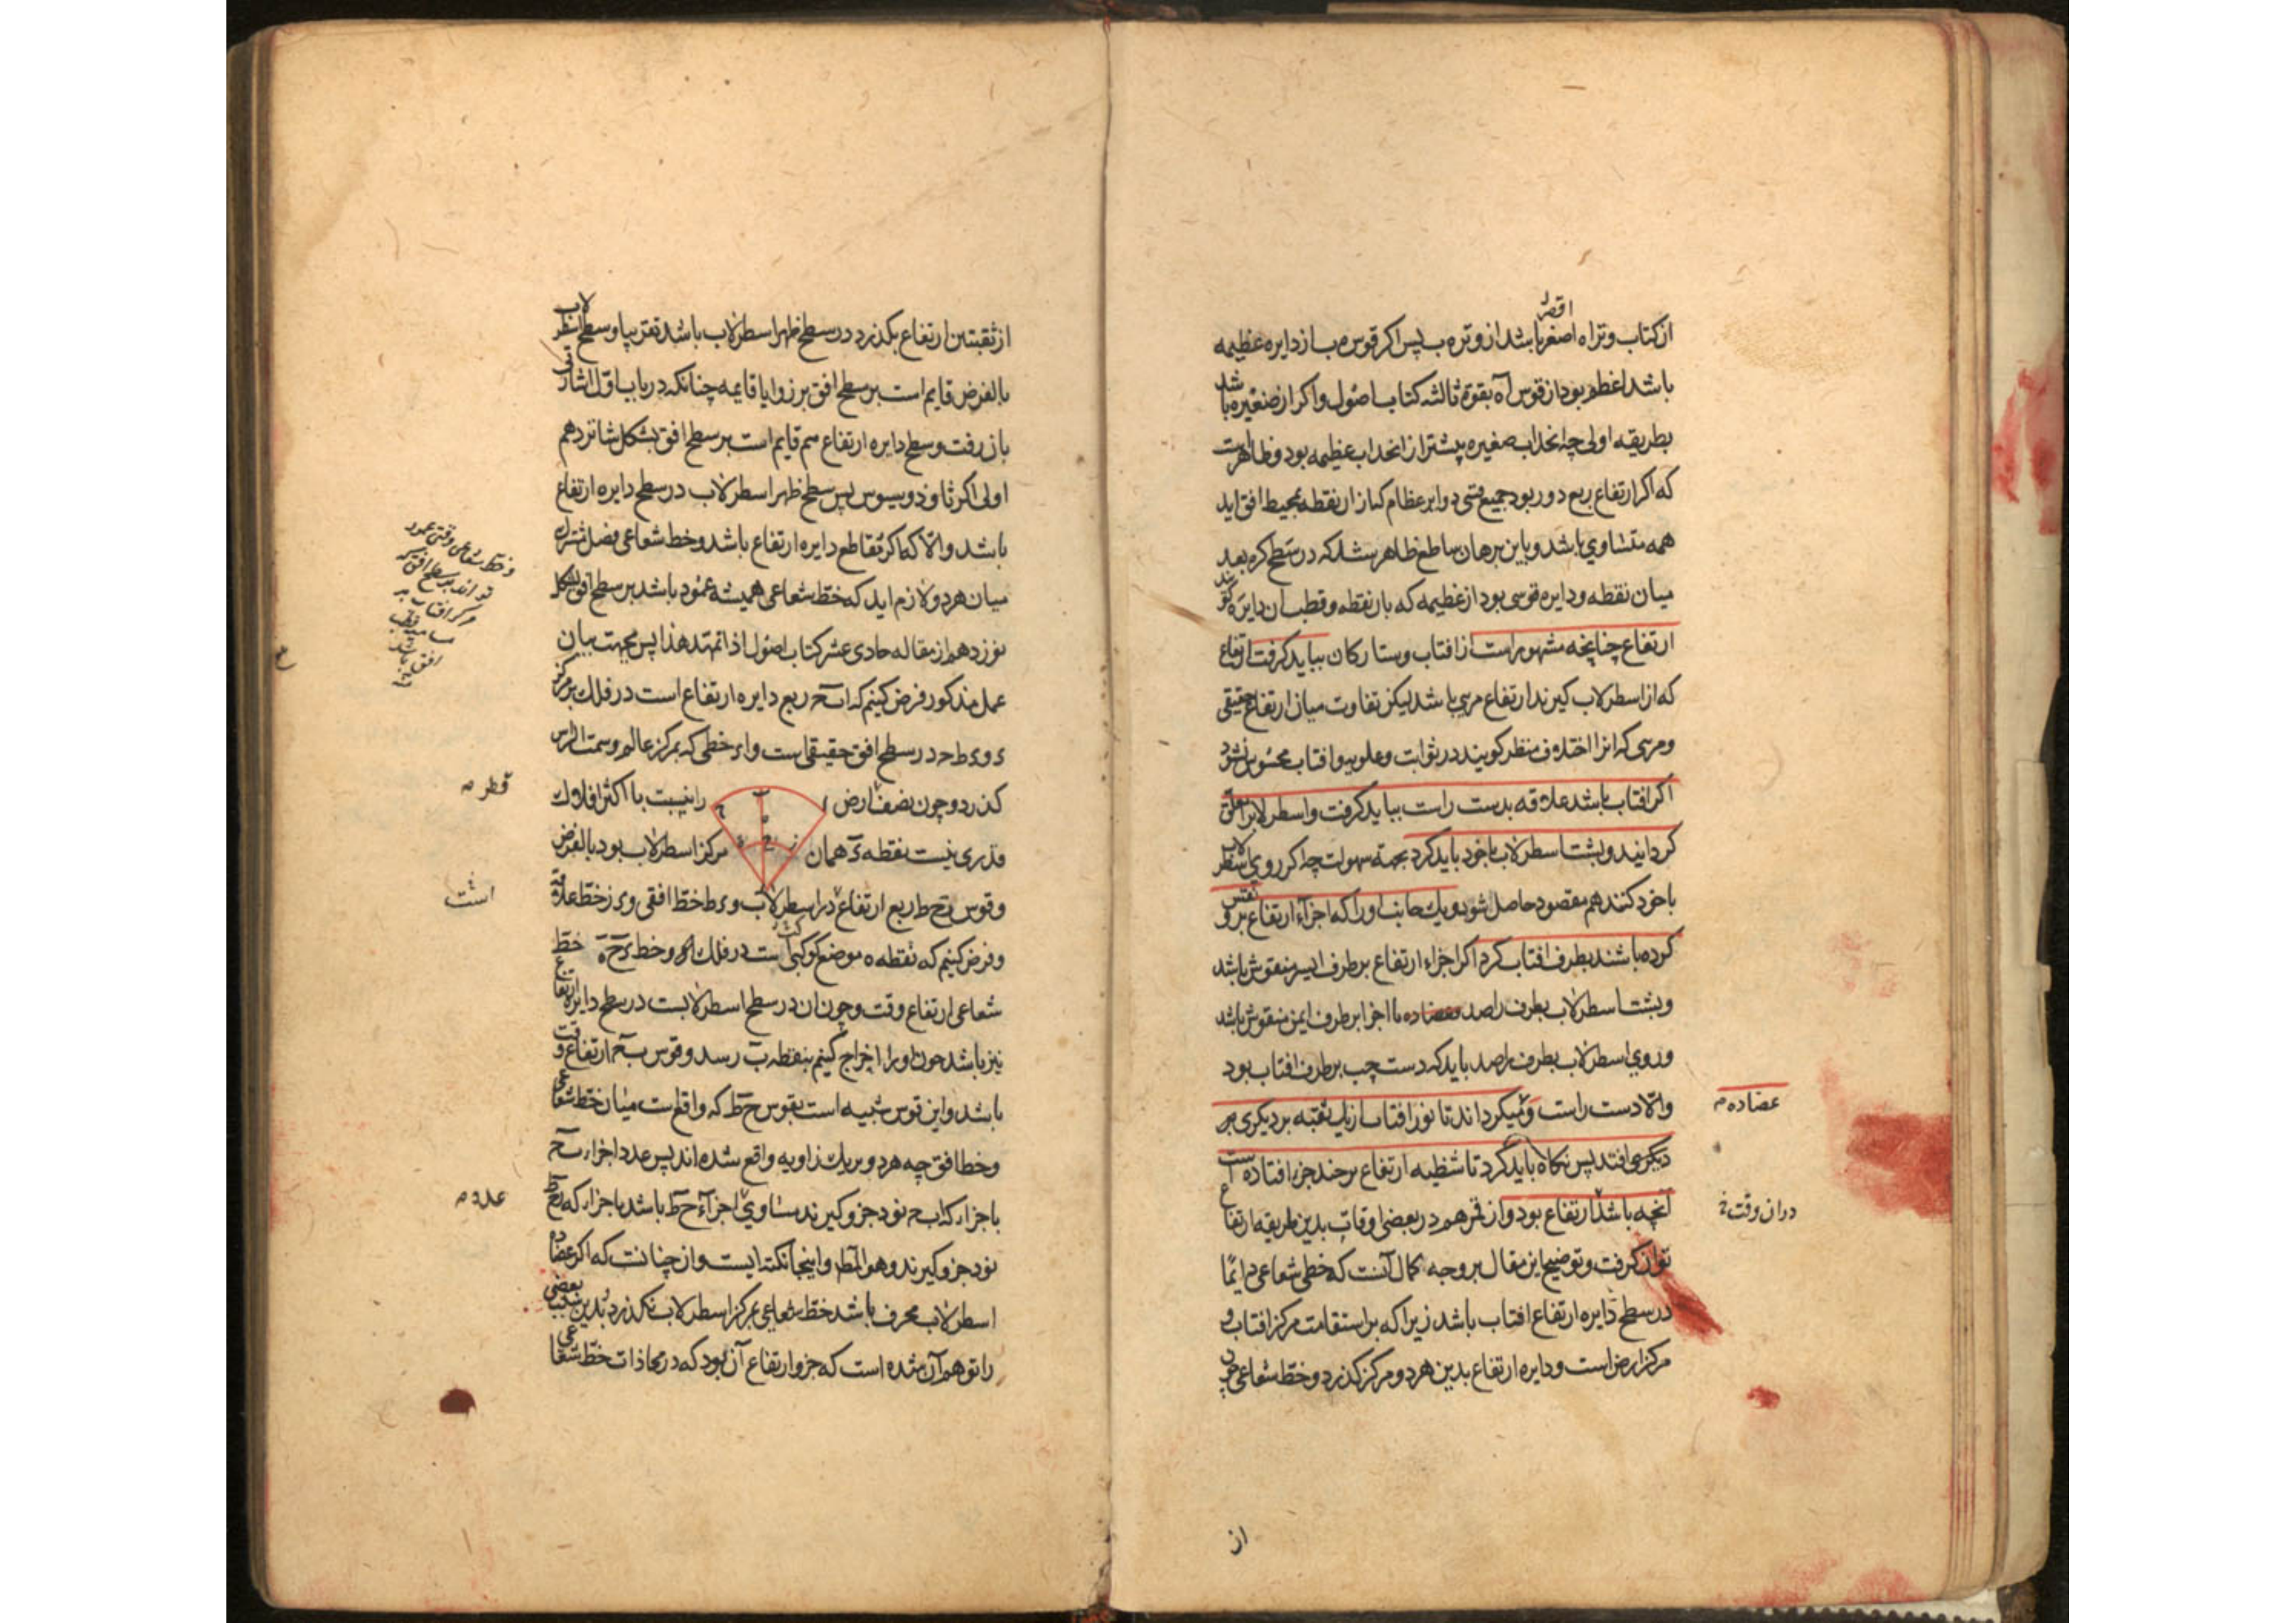 از کتاب وتر اه اصغر باشد از وتر ه ب پس اکر قوس ه ب از دایره عظیمه
باشد اعظم بود از قوس اه بقوة ثالثه کتاب اصول و اکر از صغیره باشد
بطریقه اولی چه انحداب صغیره بیشتر از انحداب عظیمه بود و ظاهرست
که اکر ارتفاع ربع دور بود جمیع قسی دوایر عظام کز ان نقطه بمحیط افق اید
همه متساوی باشد و باین برهان ساطع ظاهر شد که در سطح کره بعد
میان نقطه و دایره قوسی بود از عظیمه که بان نقطه و قطب ان دایره
ارتفاع چنانچه مشهور است از افتاب و ستارکان بباید کرفت ارتفاع
که از اسطرلاب کیرند ارتفاع مرئی باشد لیکن تفاوت میان ارتفاع حقیقی
و مرئی که انرا اختلاف منظر کویند در ثوابت و علویه و افتاب محسوس نشود
اکر افتاب باشد علاقه بدست راست بباید کرفت و اسطرلاب را معلق
کردانید و پشت اسطرلاب با خود باید کرد بجهت سهولت چه اکر روی اسطرلاب
با خود کنند هم مقصود حاصل شود و یک جانب او را که اجزاء ارتفاع برو نقش
کرده باشند بطرف افتاب کرد اکر اجزاء ارتفاع بر طرف ایسر منقوش باشد
و پشت اسطرلاب بطرف راصد یا اجزا بر طرف ایمن منقوش باشد
و روی اسطرلاب بطرف راصد باید که دست چپ بر طرف افتاب بود
و الا دست راست و میکرداند تا نور افتاب از یک ثقبه بر دیکری
عضاده
دیکری افتد پس نکاه باید کرد تا شظیه ارتفاع بر چند جزء افتاده است
انچه باشد ارتفاع بود و از قمر هم در بعضی اوقات بدین طریقه ارتفاع
دران وقت
توان کرفت و توضیح این مقال بر وجه کمال آنست که خطی شعاعی دایمًا
در سطح دایره ارتفاع افتاب باشد زیرا که بر استقامت مرکز افتاب و
مرکز ارض است و دایره ارتفاع بدین هر دو مرکز کذرد و خط شعاعی
از
از ثقبتین ارتفاع بکذرد در سطح ظهر اسطرلاب باشد تقریبا و سطح اسطرلاب
بالفرض قایم است بر سطح افق بر زوایا قایمه چنانکه در باب اول اشارتی
بازرفت و سطح دایره ارتفاع هم قایم است بر سطح افق بشکل شانزدهم
اولی اکر ثاوذوسیوس پس سطح ظهر اسطرلاب در سطح دایره ارتفاع
باشد و الا که اکر مقاطع دایره ارتفاع باشد و خط شعاعی فصل مشترک
میان هر دو لازم اید که خط شعاعی همیشه عمود باشد بر سطح افق بشکل
نوزدهم از مقاله حادی عشر کتاب اصول اذا تمهد هذا پس بجهت بیان
عمل مذکور فرض کنیم که ا ب ح ربع دایره ارتفاع است در فلک بر مرکز
ی و ی ط ح در سطح افق حقیقی است و ا ی خطی که بمرکز عالم و سمت الراس
کذرد و چون نصف ارض را بنسبت با اکثر افلاک
قطر
قدری نیست نقطه ی همان مرکز اسطرلاب بود بالفرض
و قوس ز ح ط ربع ارتفاع در اسطرلاب و ی ط خط افقی و ی ز خط علاقه
است
و فرض کنیم که نقطه ه موضع کوکبی است در فلک و خط ی ح ه خط
شعاعی ارتفاع وقت و چون ان در سطح اسطرلابست در سطح دایره ارتفاع
نیز باشد چون او را اخراج کنیم بنقطه ب رسد و قوس ب ح ارتفاع وقت
باشد و این قوس شبیه است بقوس ح ط که واقع است میان خط شعاعی
و خط افق چه هر دو بر یک زاویه واقع شده اند پس عدد اجزاء ب ح
باجزاء که ا ب ح نود جزو کیرند مساوی اجزاء ح ط باشد باجزاء که
عدد
نود جزو کیرند و هو المط و اینجا نکته ایست و ان چنانست که اکر عضاده
اسطرلاب محرف باشد خط شعاعی بمرکز اسطرلاب نکذرد بدین سبب بعضی
را توهم آن شده است که جزو ارتفاع آن بود که در محاذات خط شعاعی
و خط شعاعی وقتی عمود
تواند بر سطح افق که
مرکز افتاب بر
سمت
افق باشد